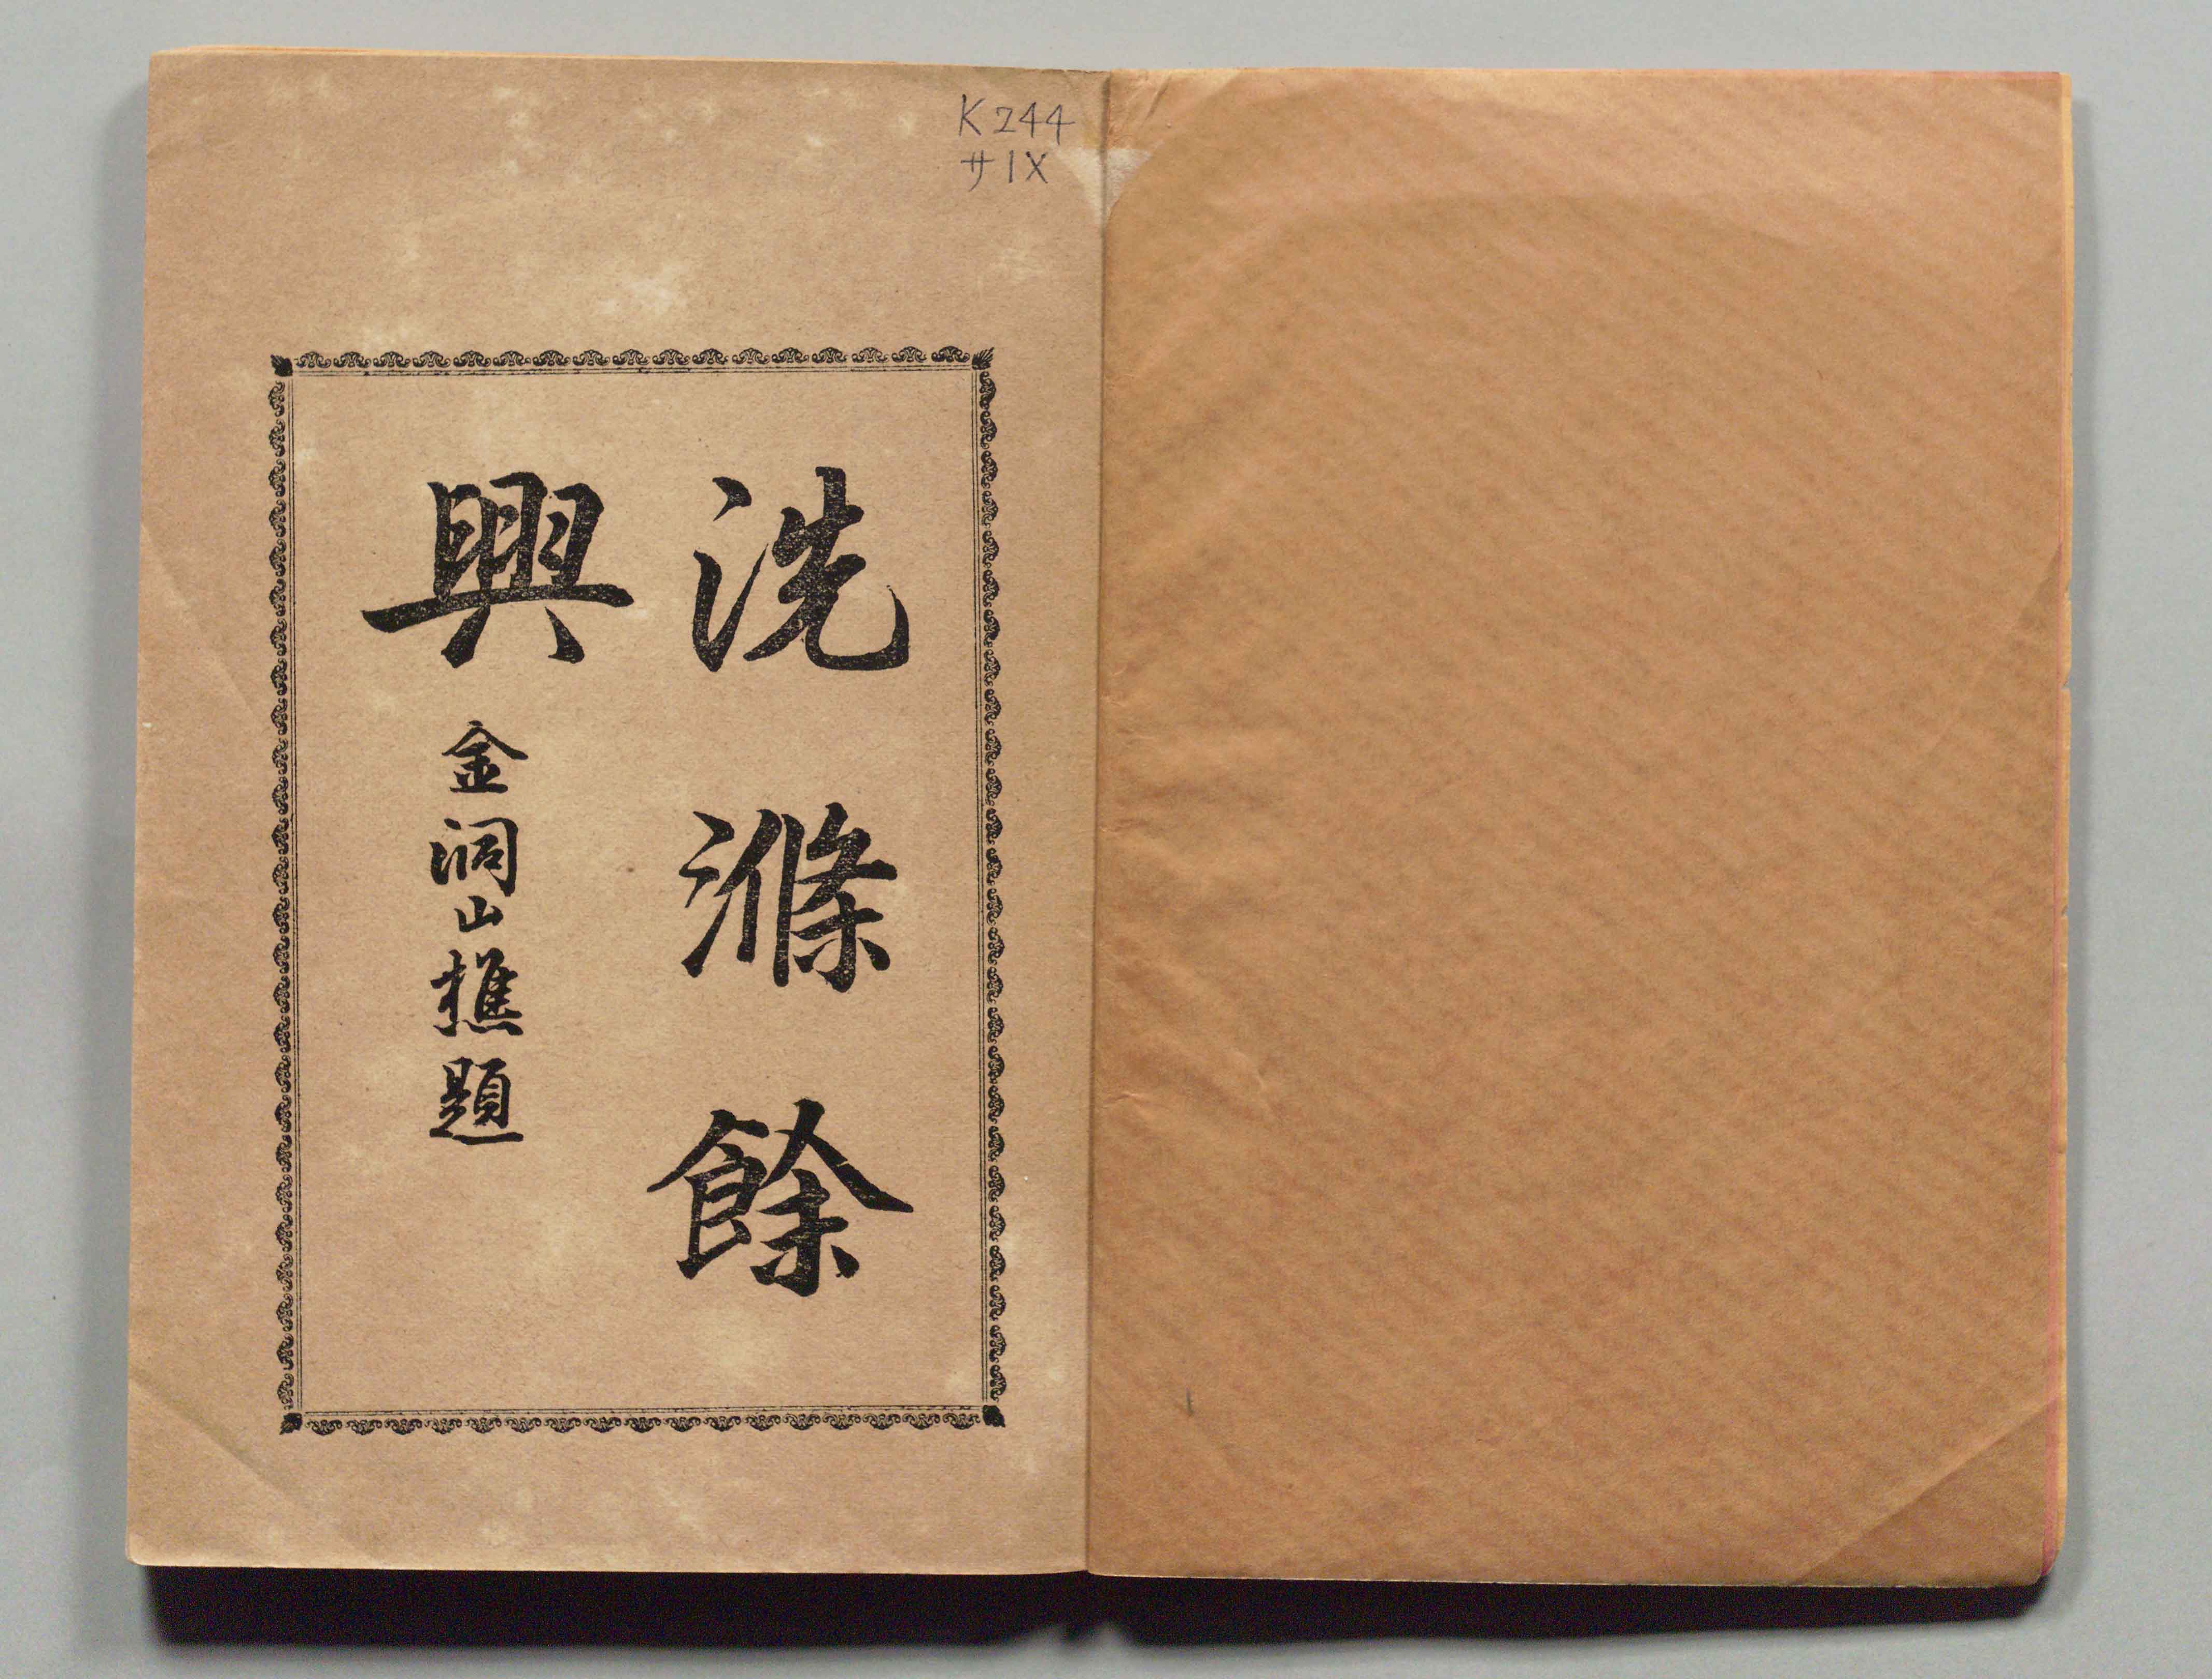 K244
サIX
洗滌餘
興
金洞山樵題